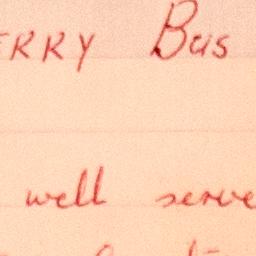 ERRY Bus
well serve